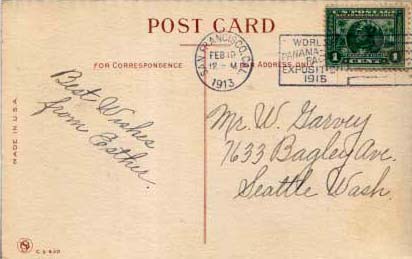 POST CARD
FOR CORRESPONDENCE
FOR ADDRESS ONLY
SAN FRANCISCO, CAL.
FEB 19
12 - M
1913
WORLD'S
PANAMA-
PAC
EXPOSITION
1915
U.S. POSTAGE
1 CENT 1
Best Wishes
from Esther.
Mr. W. Garvey
7633 Bagley Ave.
Seattle Wash.
MADE IN U.S.A.